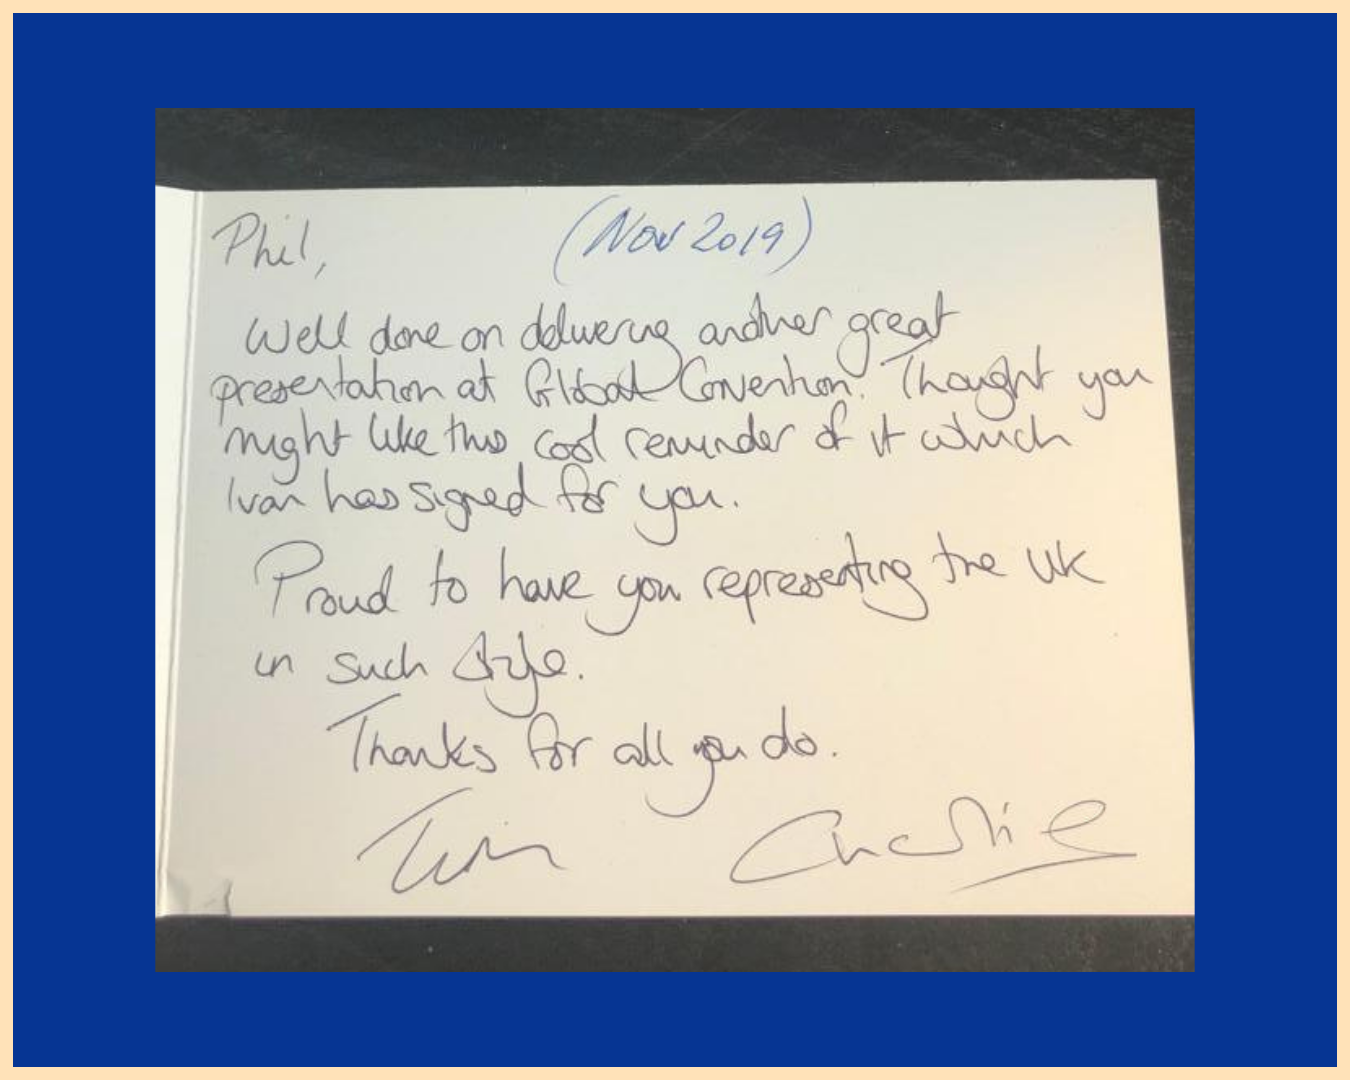 Phil, (Nov 2019)
Well done on delivering another great
presentation at Global Convention. Thought you
might like this cool reminder of it which
Ivan has signed for you.
Proud to have you representing the UK
in such style.
Thanks for all you do.
Tim Charlie